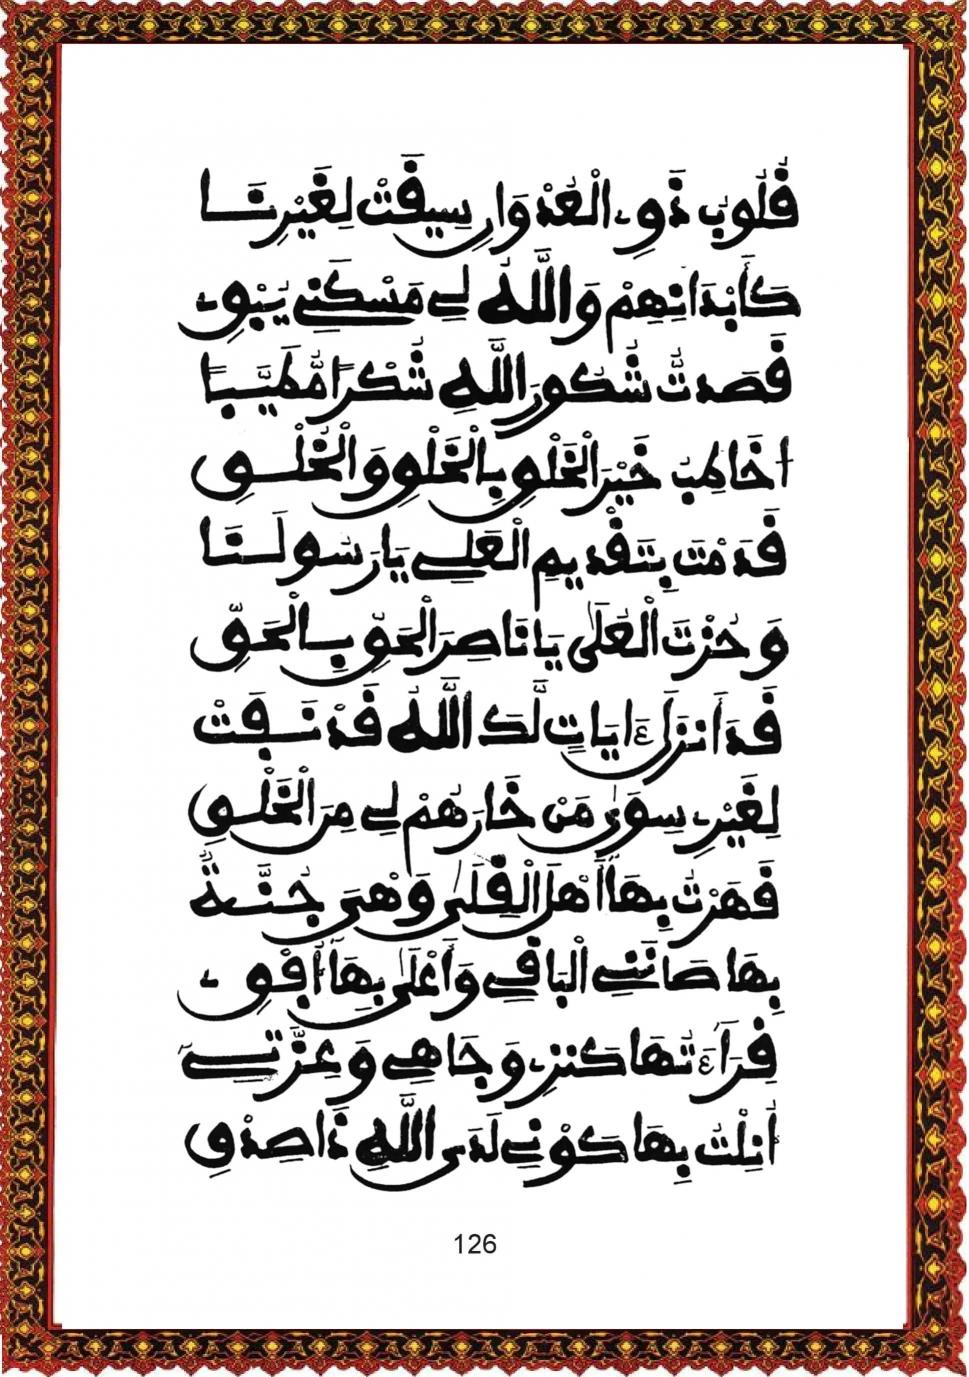 قُلُوبُ ذَوِي الْعُدْوَانِ سِيقَتْ لِغَيْرِنَا
كَأَبْدَانِهِمْ وَاللَّهُ لِي مَسْكَنِي يُبْقِي
قَصَدتُّ شَكُورَ اللَّهِ شُكْرًا مُّطَيَّبًا
أخَاطِبُ خَيْرَ الْخَلْقِ بِالْخَلْقِ وَالْخُلْقِ
قَدَمْتَ بِتَقْدِيمِ الْعَلِي يَا رَسُولَنَا
وَحُزْتَ الْعُلَى يَا نَاصِرَ الْحَقِّ بِالْحَقِّ
قَدَ أَنزَلَ ءَايَاتٍ لَّكَ اللَّهُ قَدْ نَقَتْ
لِغَيْرِي سِوَى مَنْ خَارَهُمْ لِي مِنَ الْخَلْقِ
قَهَرْتُ بِهَا أَهْلَ الْقِلَى وَهْيَ جُنَّةٌ
بِهَا صَانَنِي الْبَاقِي وَأَعْلَى بِهَا أُفْقِي
قِرَاءَتُهَا كَنْزِي وَجَاهِي وَعِزَّتِي
أَنِلْتُ بِهَا كَوْنِي لَدَى اللَّهِ ذَا صِدْقِ
126